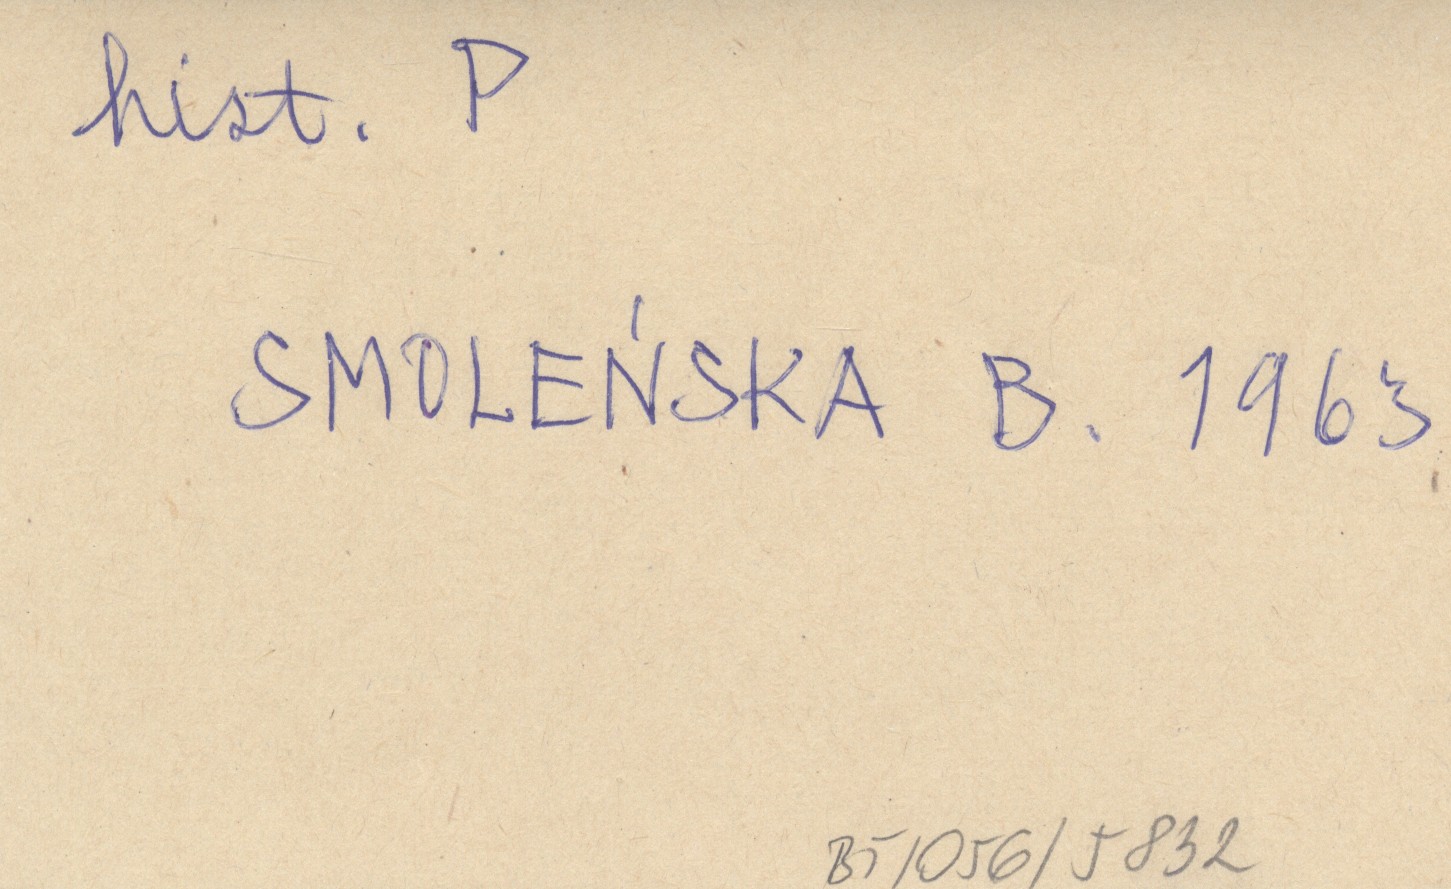 hist. P
SMOLEŃSKA B. 1963
BS/056/5832